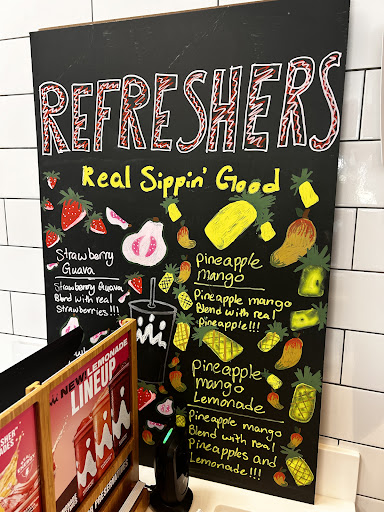 REFRESHERS
Real Sippin' Good
Strawberry
Guava
Strawberry Guava
Blend with real
Strawberries!!!
Pineapple
mango
Pineapple mango
Blend with real
Pineapple!!!
Pineapple
mango
Lemonade
Pineapple mango
Blend with real
Pineapples and
Lemonade!!!
NEW LEMONADE
LINEUP